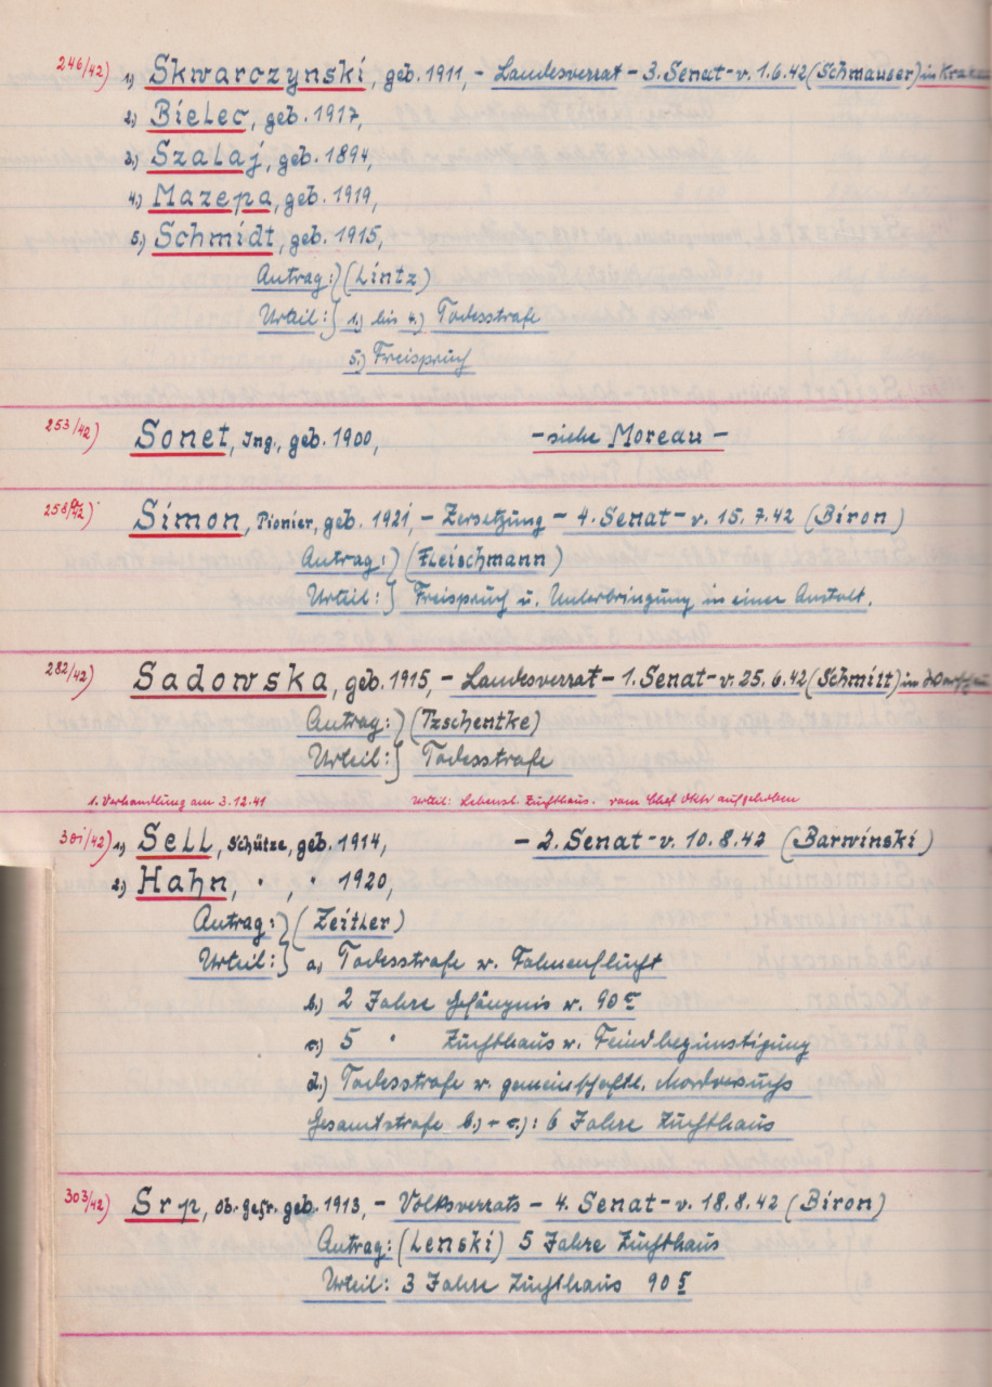 246/42) 1.) Skwarczynski, geb. 1911, - Landesverrat - 3. Senat - v. 1.6.42 (Schmauser) in Krakau
2.) Bielec, geb. 1917,
3.) Szalaj, geb. 1894,
4.) Mazepa, geb. 1919,
5.) Schmidt, geb. 1915,
Antrag:} (Lintz)
Urteil:} 1.) bis 4.) Todesstrafe
5.) Freispruch
253/42) Sonet, Ing., geb. 1900, - siehe Moreau -
258/42) Simon, Pionier, geb. 1921, - Zersetzung - 4. Senat - v. 15.7.42 (Biron)
Antrag:} (Fleischmann)
Urteil:} Freispruch u. Unterbringung in einer Anstalt.
282/42) Sadowska, geb. 1915, - Landesverrat - 1. Senat - v. 25.6.42 (Schmitt) in Warschau
Antrag:} (Tzschentke)
Urteil:} Todesstrafe
1. Verhandlung am 3.12.41 Urteil: Lebensl. Zuchthaus. vom Chef OKW aufgehoben
301/42) 1) Sell, Schütze, geb. 1914, - 2. Senat - v. 10.8.42 (Barwinski)
2) Hahn, " , " 1920,
Antrag:} (Zeitler)
Urteil:} a.) Todesstrafe w. Fahnenflucht
b.) 2 Jahre Gefängnis w. 90 c
c.) 5 " Zuchthaus w. Feindbegünstigung
d.) Todesstrafe w. gemeinschaftl. Mordversuchs
Gesamtstrafe b.) + c.): 6 Jahre Zuchthaus
303/42) Srp, Ob. gefr. geb. 1913, - Volksverrats - 4. Senat - v. 18.8.42 (Biron)
Antrag: (Lenski) 5 Jahre Zuchthaus
Urteil: 3 Jahre Zuchthaus 90 S